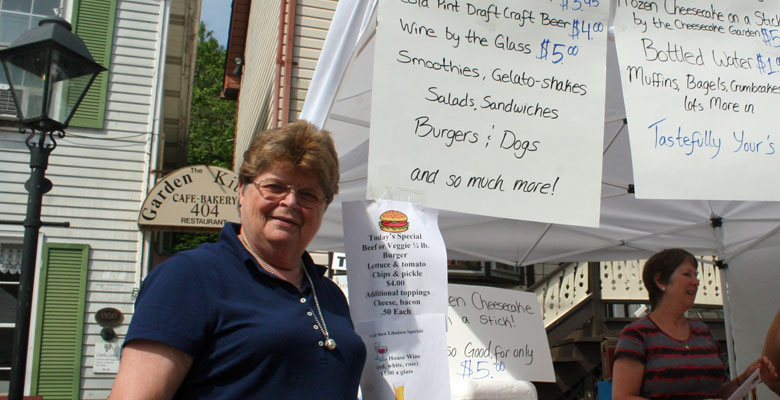 $3.95
Cold Pint Draft Craft Beer $4.00
Wine by the Glass $5.00
Smoothies, Gelato-shakes
Salads, Sandwiches
Burgers & Dogs
and so much more!
Frozen Cheesecake on a Stick
by the Cheesecake Garden $5
Bottled Water $1
Muffins, Bagels, Crumbcakes
lots More in
Tastefully Your's
The
Garden Kit
CAFE-BAKERY
404
RESTAURANT
Today's Special
Beef or Veggie ¼ lb.
Burger
Lettuce & tomato
Chips & pickle
$4.00
Additional toppings
Cheese, bacon
.50 Each
Specials
House Wine
(red, white, rose)
a glass
Cheesecake
a stick!
so Good, for only
$5.00